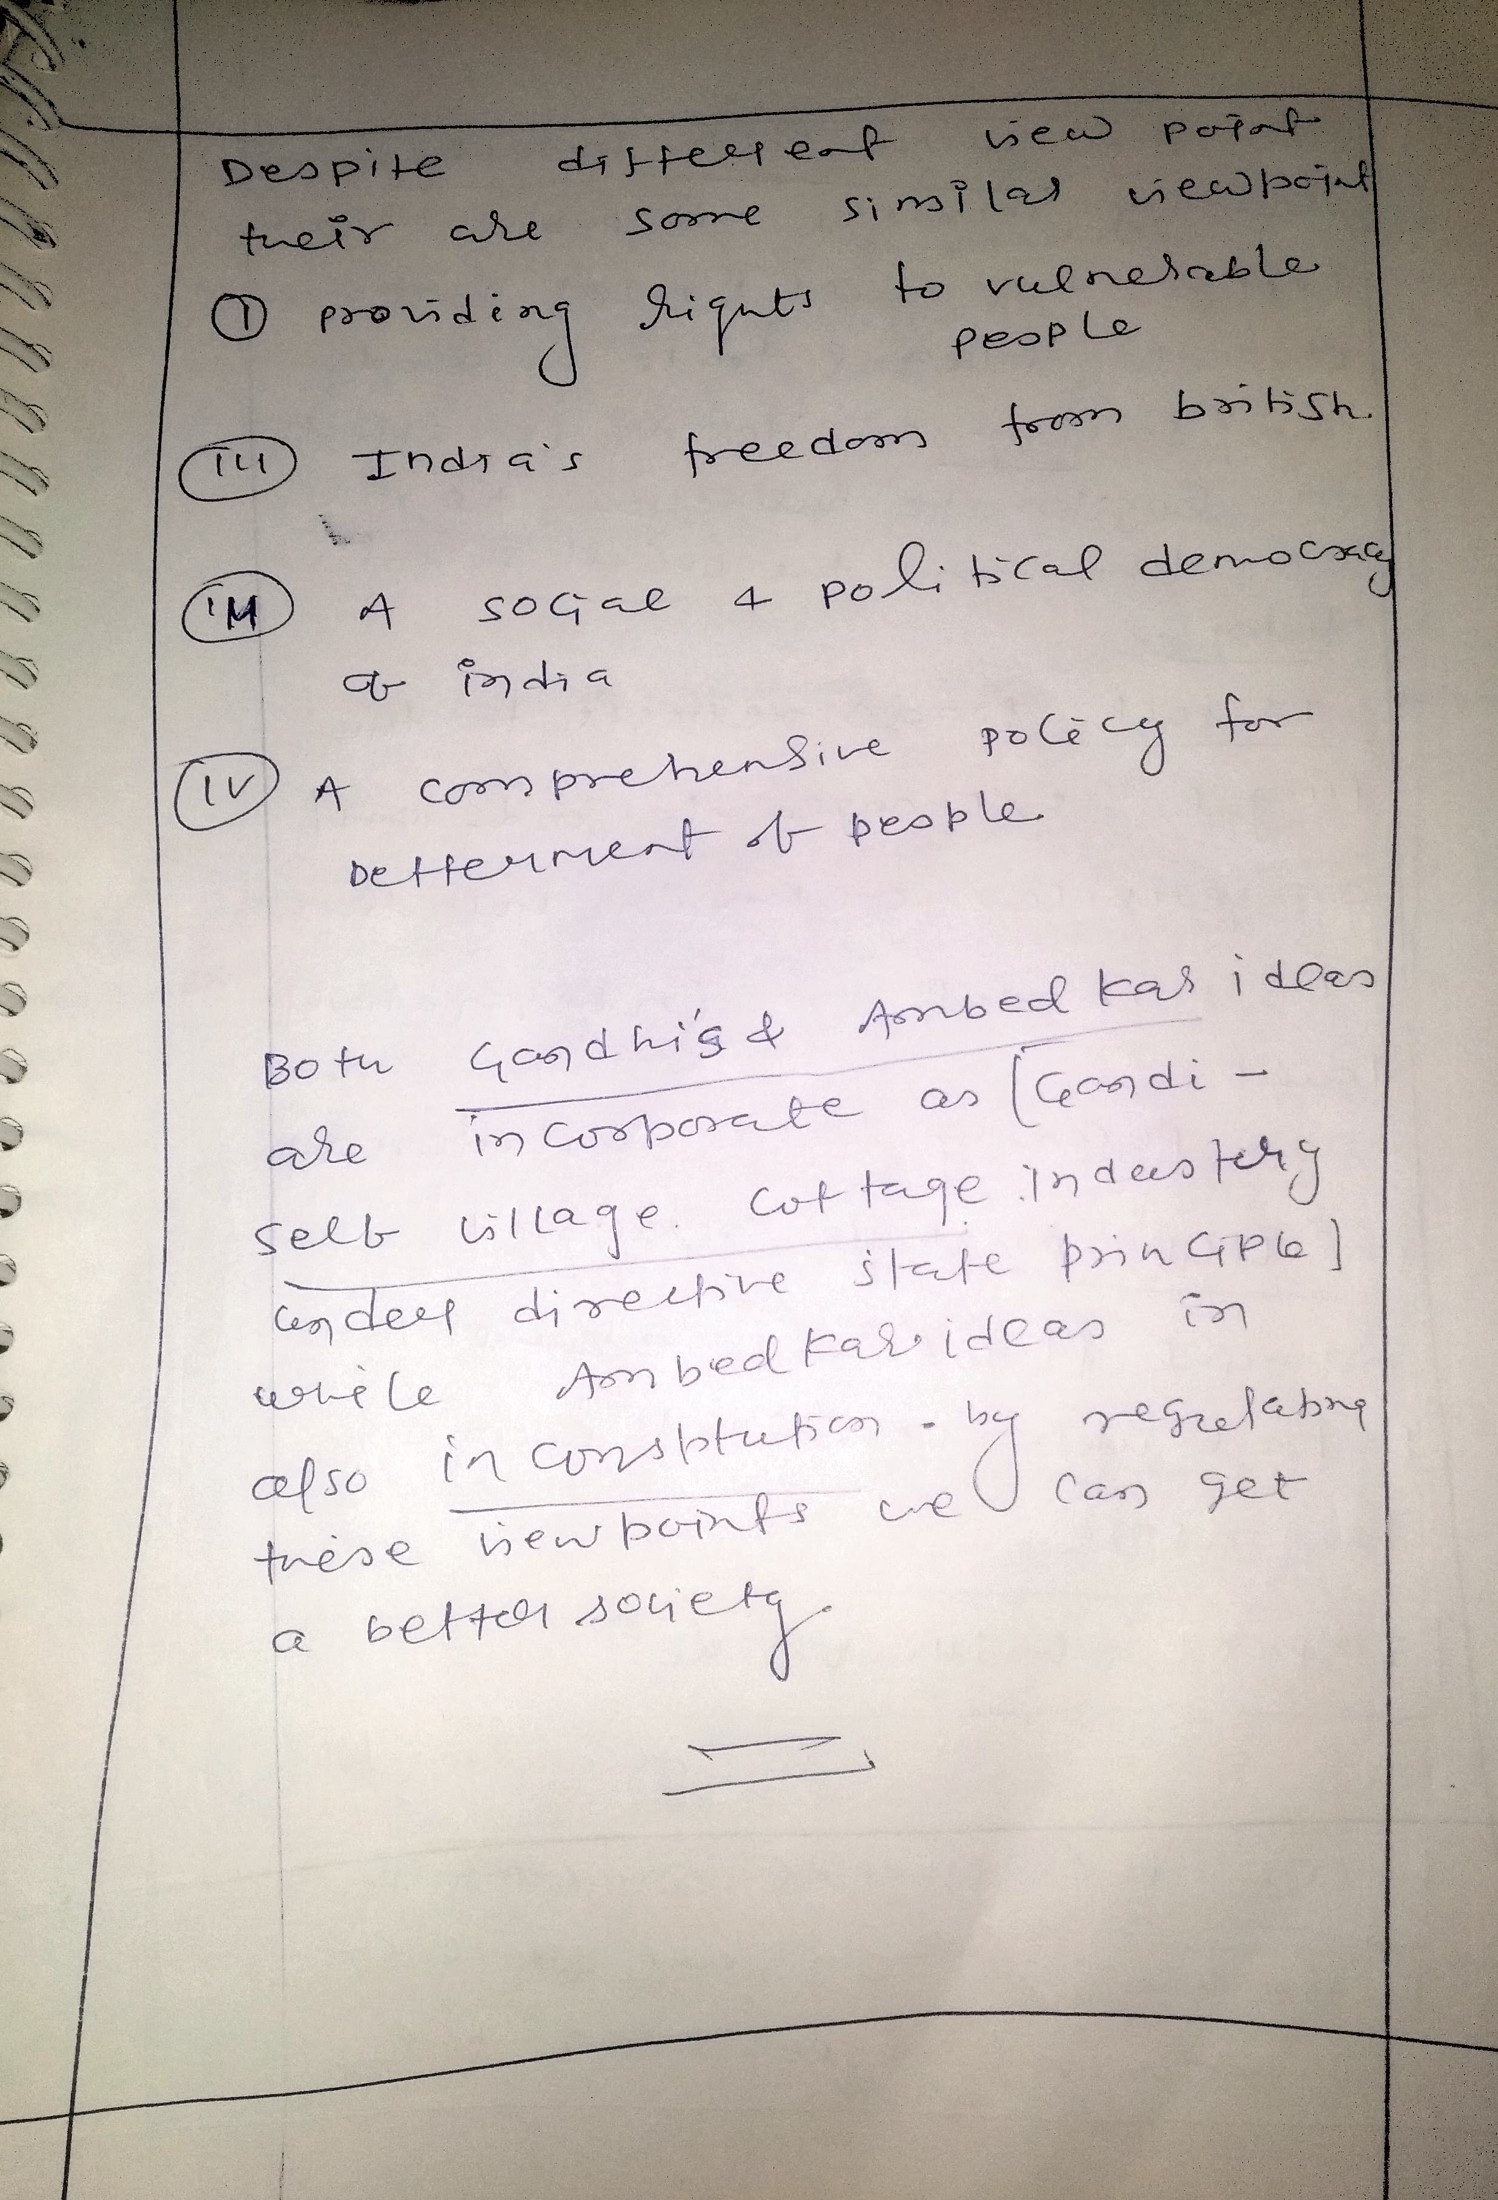 Despite different view point
their are some similar viewpoint
I providing rights to vulnerable
people
III India's freedom from british.
A social & political democracy
of india
IV A comprehensive policy for
betterment of people
Both Gandhi's & Ambedkar ideas
are incorporate as [Gandi -
self village. Cottage industery
under directive state principle]
while Ambedkar ideas in
also in constitution. by regulating
these viewpoints we can get
a better society.